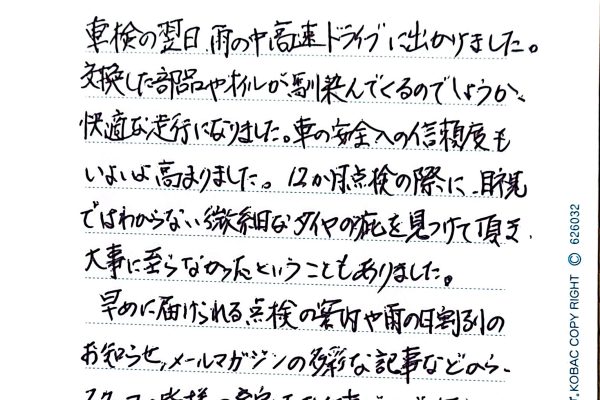 車検の翌日、雨の中高速ドライブに出かけました。
交換した部品やオイルが馴染んでくるのでしょうか、
快適な走行になりました。車の安全への信頼度も
いよいよ高まりました。12か月点検の際に、目視
ではわからない微細なタイヤの疵を見つけて頂き、
大事に至らなかったということもありました。
早めに届けられる点検の案内や雨の日割引の
お知らせ、メールマガジンの多彩な記事などから、
T.KOBAC COPY RIGHT © 626032